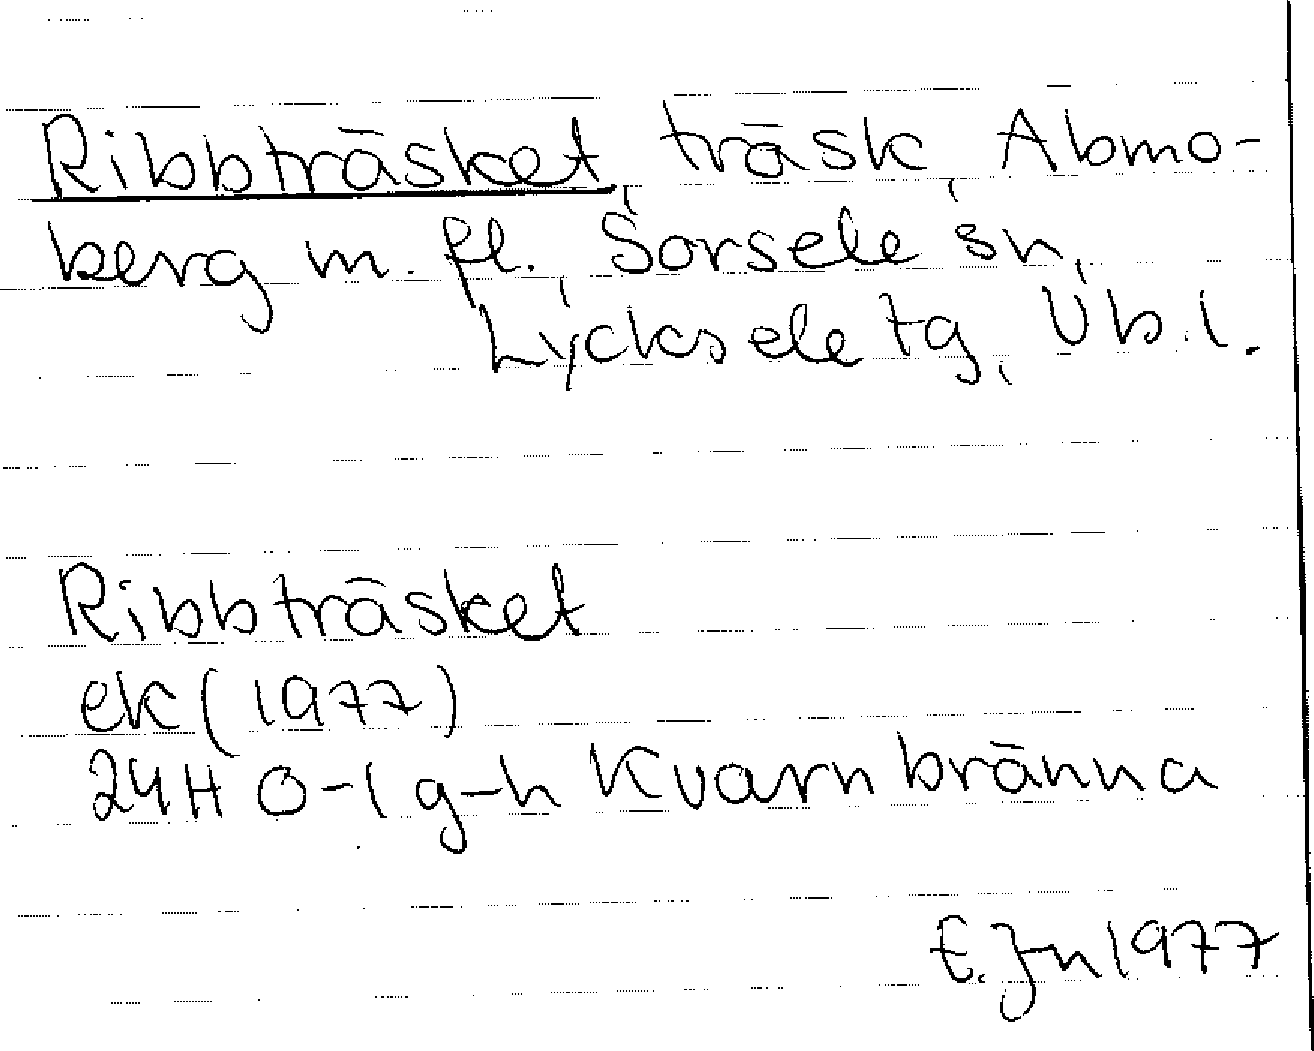 Ribbträsket, träsk, Abmo-
berg m. fl., Sorsele sn,
Lycksele tg, Vb. l.
Ribbträsket
ek (1977)
24H 0-1 g-h Kvarnbränna
E. Jn 1977